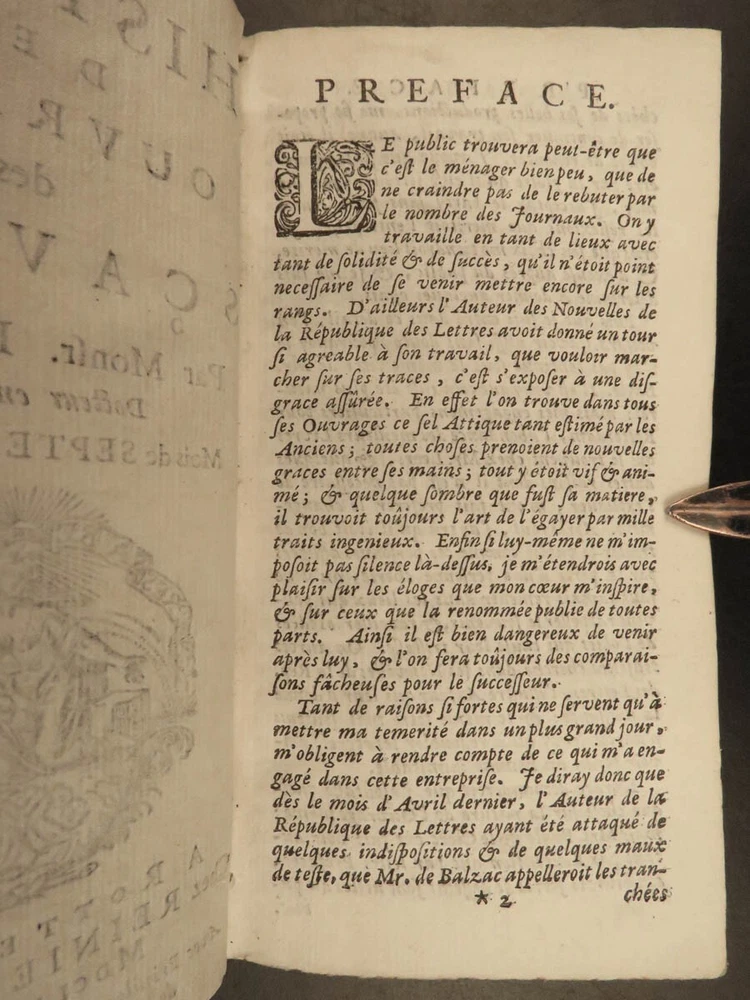 PREFACE.
LE public trouvera peut-être que
c'eſt le ménager bien peu, que de
ne craindre pas de le rebuter par
le nombre des Journaux. On y
travaille en tant de lieux avec
tant de ſolidité & de ſuccès, qu'il n'étoit point
neceſſaire de ſe venir mettre encore ſur les
rangs. D'ailleurs l'Auteur des Nouvelles de
la République des Lettres avoit donné un tour
ſi agreable à ſon travail, que vouloir mar-
cher ſur ſes traces, c'eſt s'expoſer à une diſ-
grace aſſûrée. En effet l'on trouve dans tous
ſes Ouvrages ce ſel Attique tant eſtimé par les
Anciens; toutes choſes prenoient de nouvelles
graces entre ſes mains; tout y étoit vif & ani-
mé; & quelque ſombre que fuſt ſa matiere,
il trouvoit toûjours l'art de l'égayer par mille
traits ingenieux. Enfin ſi luy-même ne m'im-
poſoit pas ſilence là-deſſus, je m'étendrois avec
plaiſir ſur les éloges que mon cœur m'inſpire,
& ſur ceux que la renommée publie de toutes
parts. Ainſi il eſt bien dangereux de venir
après luy, & l'on fera toûjours des comparai-
ſons fâcheuſes pour le ſucceſſeur.
Tant de raiſons ſi fortes qui ne ſervent qu'à
mettre ma temerité dans un plus grand jour,
m'obligent à rendre compte de ce qui m'a en-
gagé dans cette entrepriſe. Je diray donc que
dès le mois d'Avril dernier, l'Auteur de la
République des Lettres ayant été attaqué de
quelques indiſpoſitions & de quelques maux
de teſte, que Mr. de Balzac appelleroit les tran-
* 2
chées